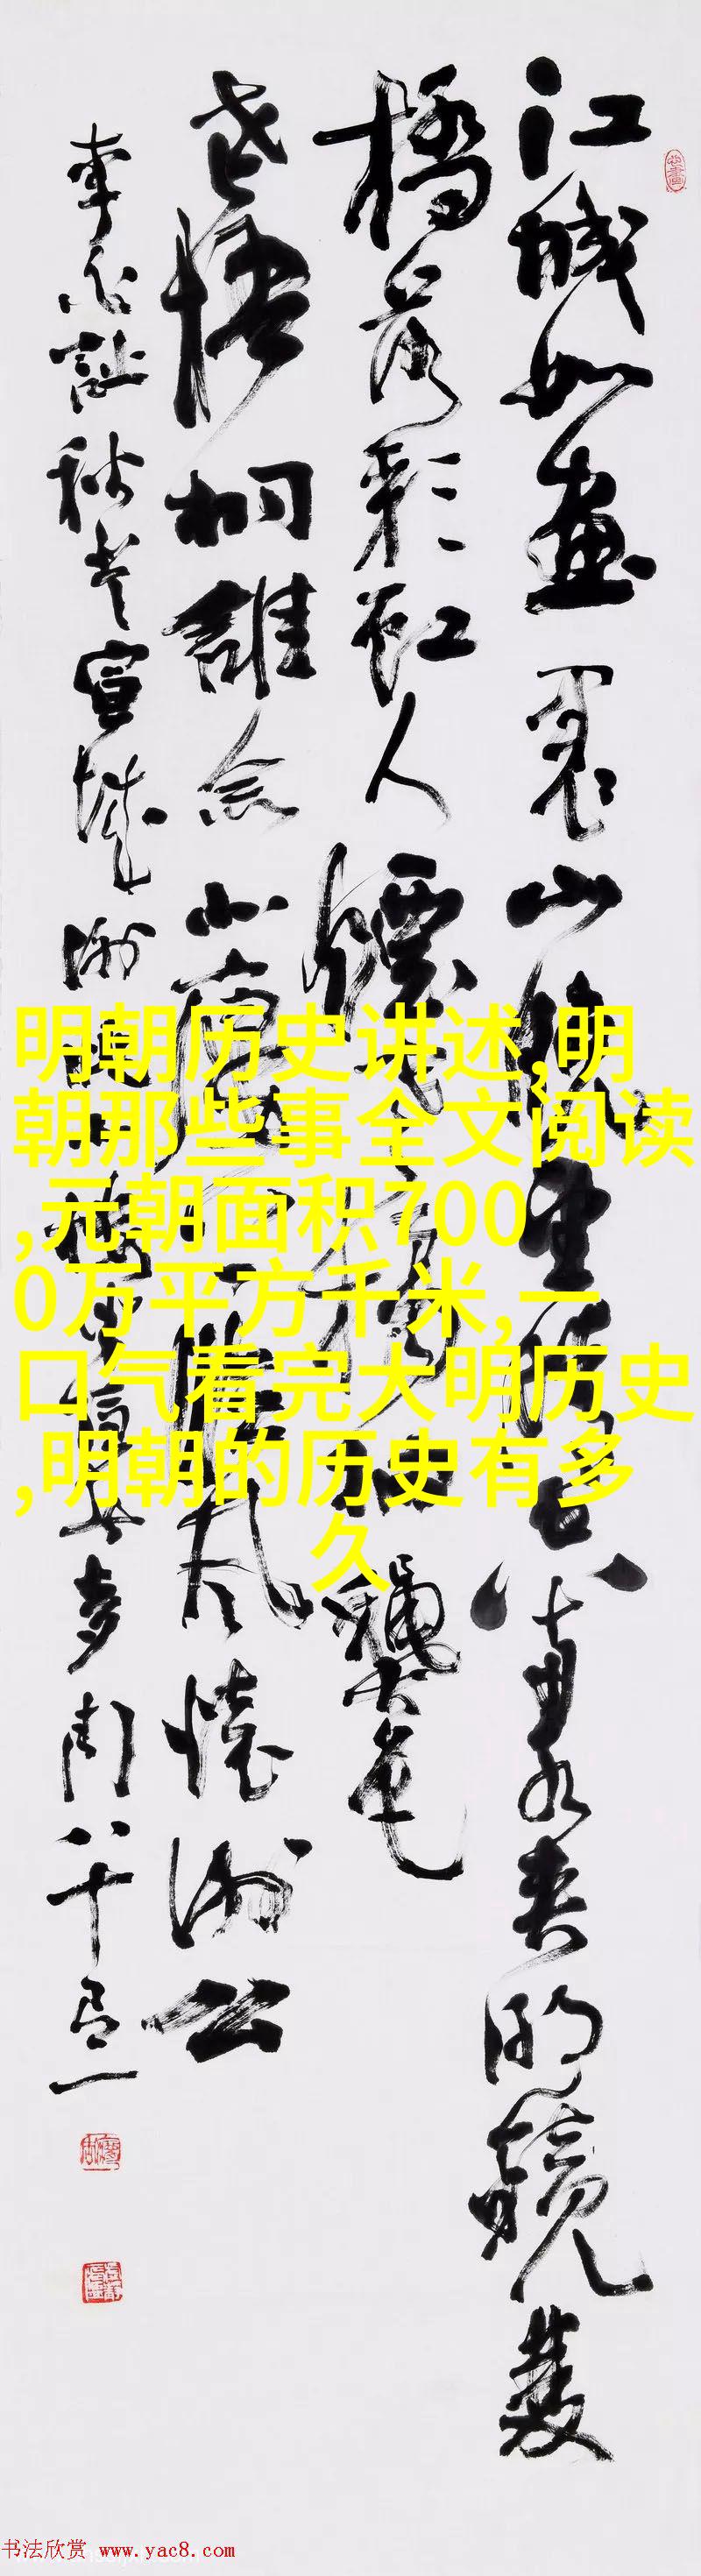 江城如畫裏山晚望晴空兩水夾明鏡雙
橋落彩虹人煙寒橘柚秋色
老梧桐誰念北樓上臨風懷謝公
李白詩秋登宣城謝朓北樓
八十有一
明朝历史讲述,明
朝那些事全文阅读
,元朝面积700
0万平方千米,一
口气看完大明历史
,明朝的历史有多
久
书法欣赏 www.yac8.com